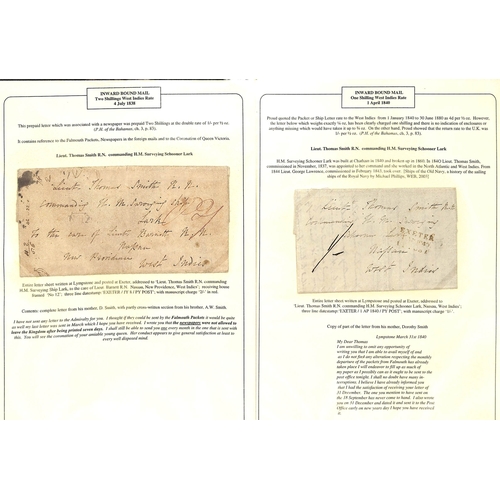 INWARD BOUND MAIL
Two Shillings West Indies Rate
4 July 1838
This prepaid letter which was associated with a newspaper was prepaid Two Shillings at the double rate of 1/- per ½ oz.
(P.H. of the Bahamas, ch. 3, p. 83).
It contains reference to the Falmouth Packets, Newspapers in the foreign mails and to the Coronation of Queen Victoria.
Lieut. Thomas Smith R.N. commanding H.M. Surveying Schooner Lark
Lieut. Thomas Smith R.N.
Commanding H.M. Surveying
Lark
To the care of Lieut Barnett R.N.
Nassau
New Providence
West Indies
Entire letter sheet written at Lympstone and posted at Exeter, addressed to 'Lieut. Thomas Smith R.N. commanding
H.M. Surveying Ship Lark, to the care of Lieut. Barnett R.N. Nassau, New Providence, West Indies'; receiving house
framed 'No 12'; three line datestamp 'EXETER / JY 4 / PY POST', with manuscript charge '2/-' in red.
Contents: complete letter from his brother, D. Smith, with partly cross-written section from his brother, A.W. Smith.
I have not sent any letter to the Admiralty for you. I thought if they could be sent by the Falmouth Packets it would be quite
as well my last letter was sent in March which I hope you have received. I wrote you that the newspapers were not allowed to
leave the Kingdom after being printed seven days. I shall still be able to send you one every month in the one that is sent with
this. You will see the coronation of your amiable young Queen. Her conduct appears to give general satisfaction at least to
every well disposed mind.
INWARD BOUND MAIL
One Shilling West Indies Rate
1 April 1840
Proud quoted the Packet or Ship Letter rate to the West Indies from 1 January 1840 to 30 June 1880 as 4d per ½ oz. However,
the letter below which weighs exactly ½ oz, has been clearly charged one shilling and there is no indication of enclosures or
anything missing which would have taken it up to ¾ oz. On the other hand, Proud showed that the return rate to the U.K. was
1/- per ½ oz. (P.H. of the Bahamas, ch. 3, p. 83).
Lieut. Thomas Smith R.N. commanding H.M. Surveying Schooner Lark
H.M. Surveying Schooner Lark was built at Chatham in 1880 and broken up in 1860. In 1840 Lieut. Thomas Smith,
commissioned in November, 1837, was appointed to her command and she worked in the North Atlantic and West Indies. From
1844 Lieut. George Lawrence, commissioned in February 1842, took over. [Ships of the Old Navy, a history of the sailing
ships of the Royal Navy by Michael Phillips, WEB, 2003]
Lieut. Thomas Smith R.N.
Commanding H.M. Surveying
Schooner Lark
EXETER
Nassau
West Indies
Entire letter sheet written at Lympstone and posted at Exeter, addressed to
'Lieut. Thomas Smith R.N. commanding H.M. Surveying Schooner Lark, Nassau, West Indies';
three line datestamp 'EXETER / 1 AP 1840 / PY POST'; with manuscript charge '1/-'.
Copy of part of the letter from his mother, Dorothy Smith
Lympstone March 31st 1840
My Dear Thomas
I am unwilling to omit any opportunity of
writing you that I am able to avail myself of and
as I do not find any alteration respecting the monthly
departure of the packets from Falmouth has already
taken place I will endeavour to fill up as much of
my paper as I possibly can as it ought to be sent to the
post office tonight. I shall no doubt have many in-
scriptions. I believe I have already informed you
that I had the satisfaction of receiving your letter of
31 December. The one you mentioned to have sent on
the 19 September has never come to hand. I also wrote
you on 31 December and dated it and sent it to the Post
Office early on new years day I hope you have received
it.